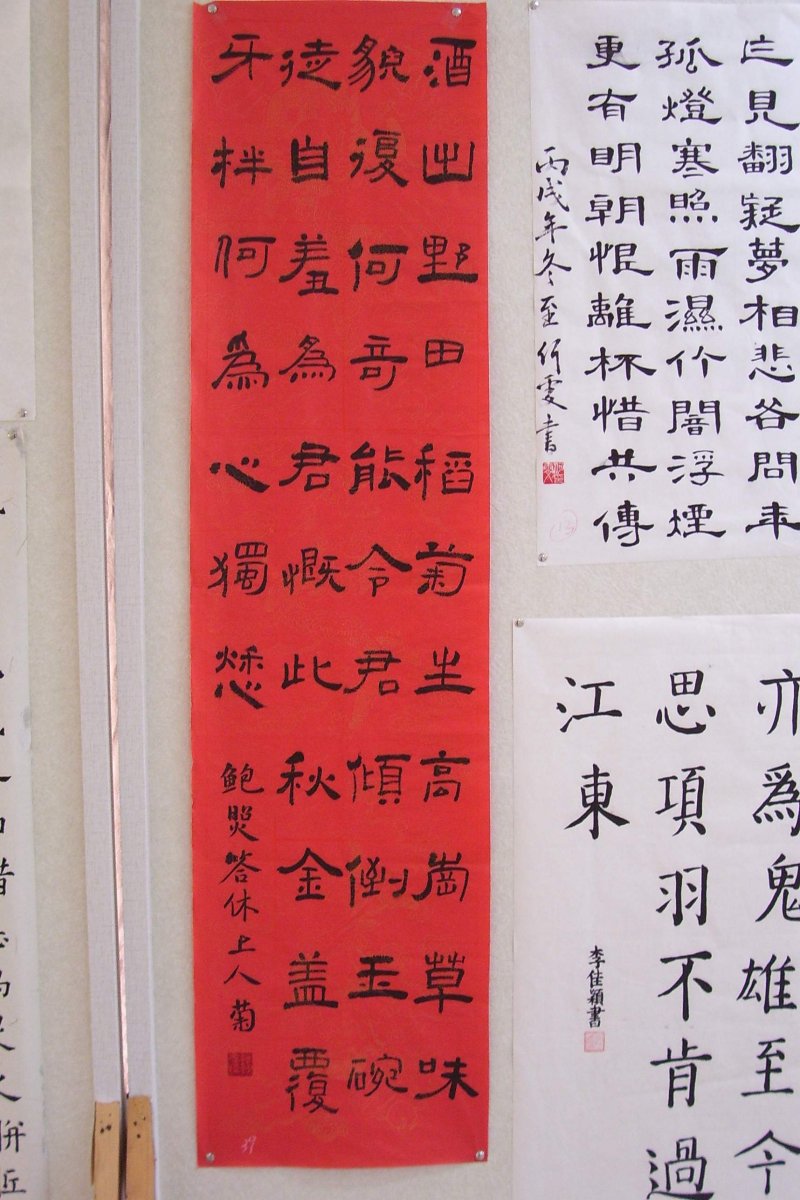 酒出野田稻菊生高崗草味
貌復何奇能令君傾倒玉碗
徒自羞為君慨此秋金盖覆
牙柈何爲心獨愁
鮑照答休上人菊
39
乍見翻疑夢相悲各問年
孤燈寒照雨濕竹闇浮煙
更有明朝恨離杯惜共傳
丙戌年冬至 書
13
亦爲鬼雄至今
思項羽不肯過
江東
李佳穎書